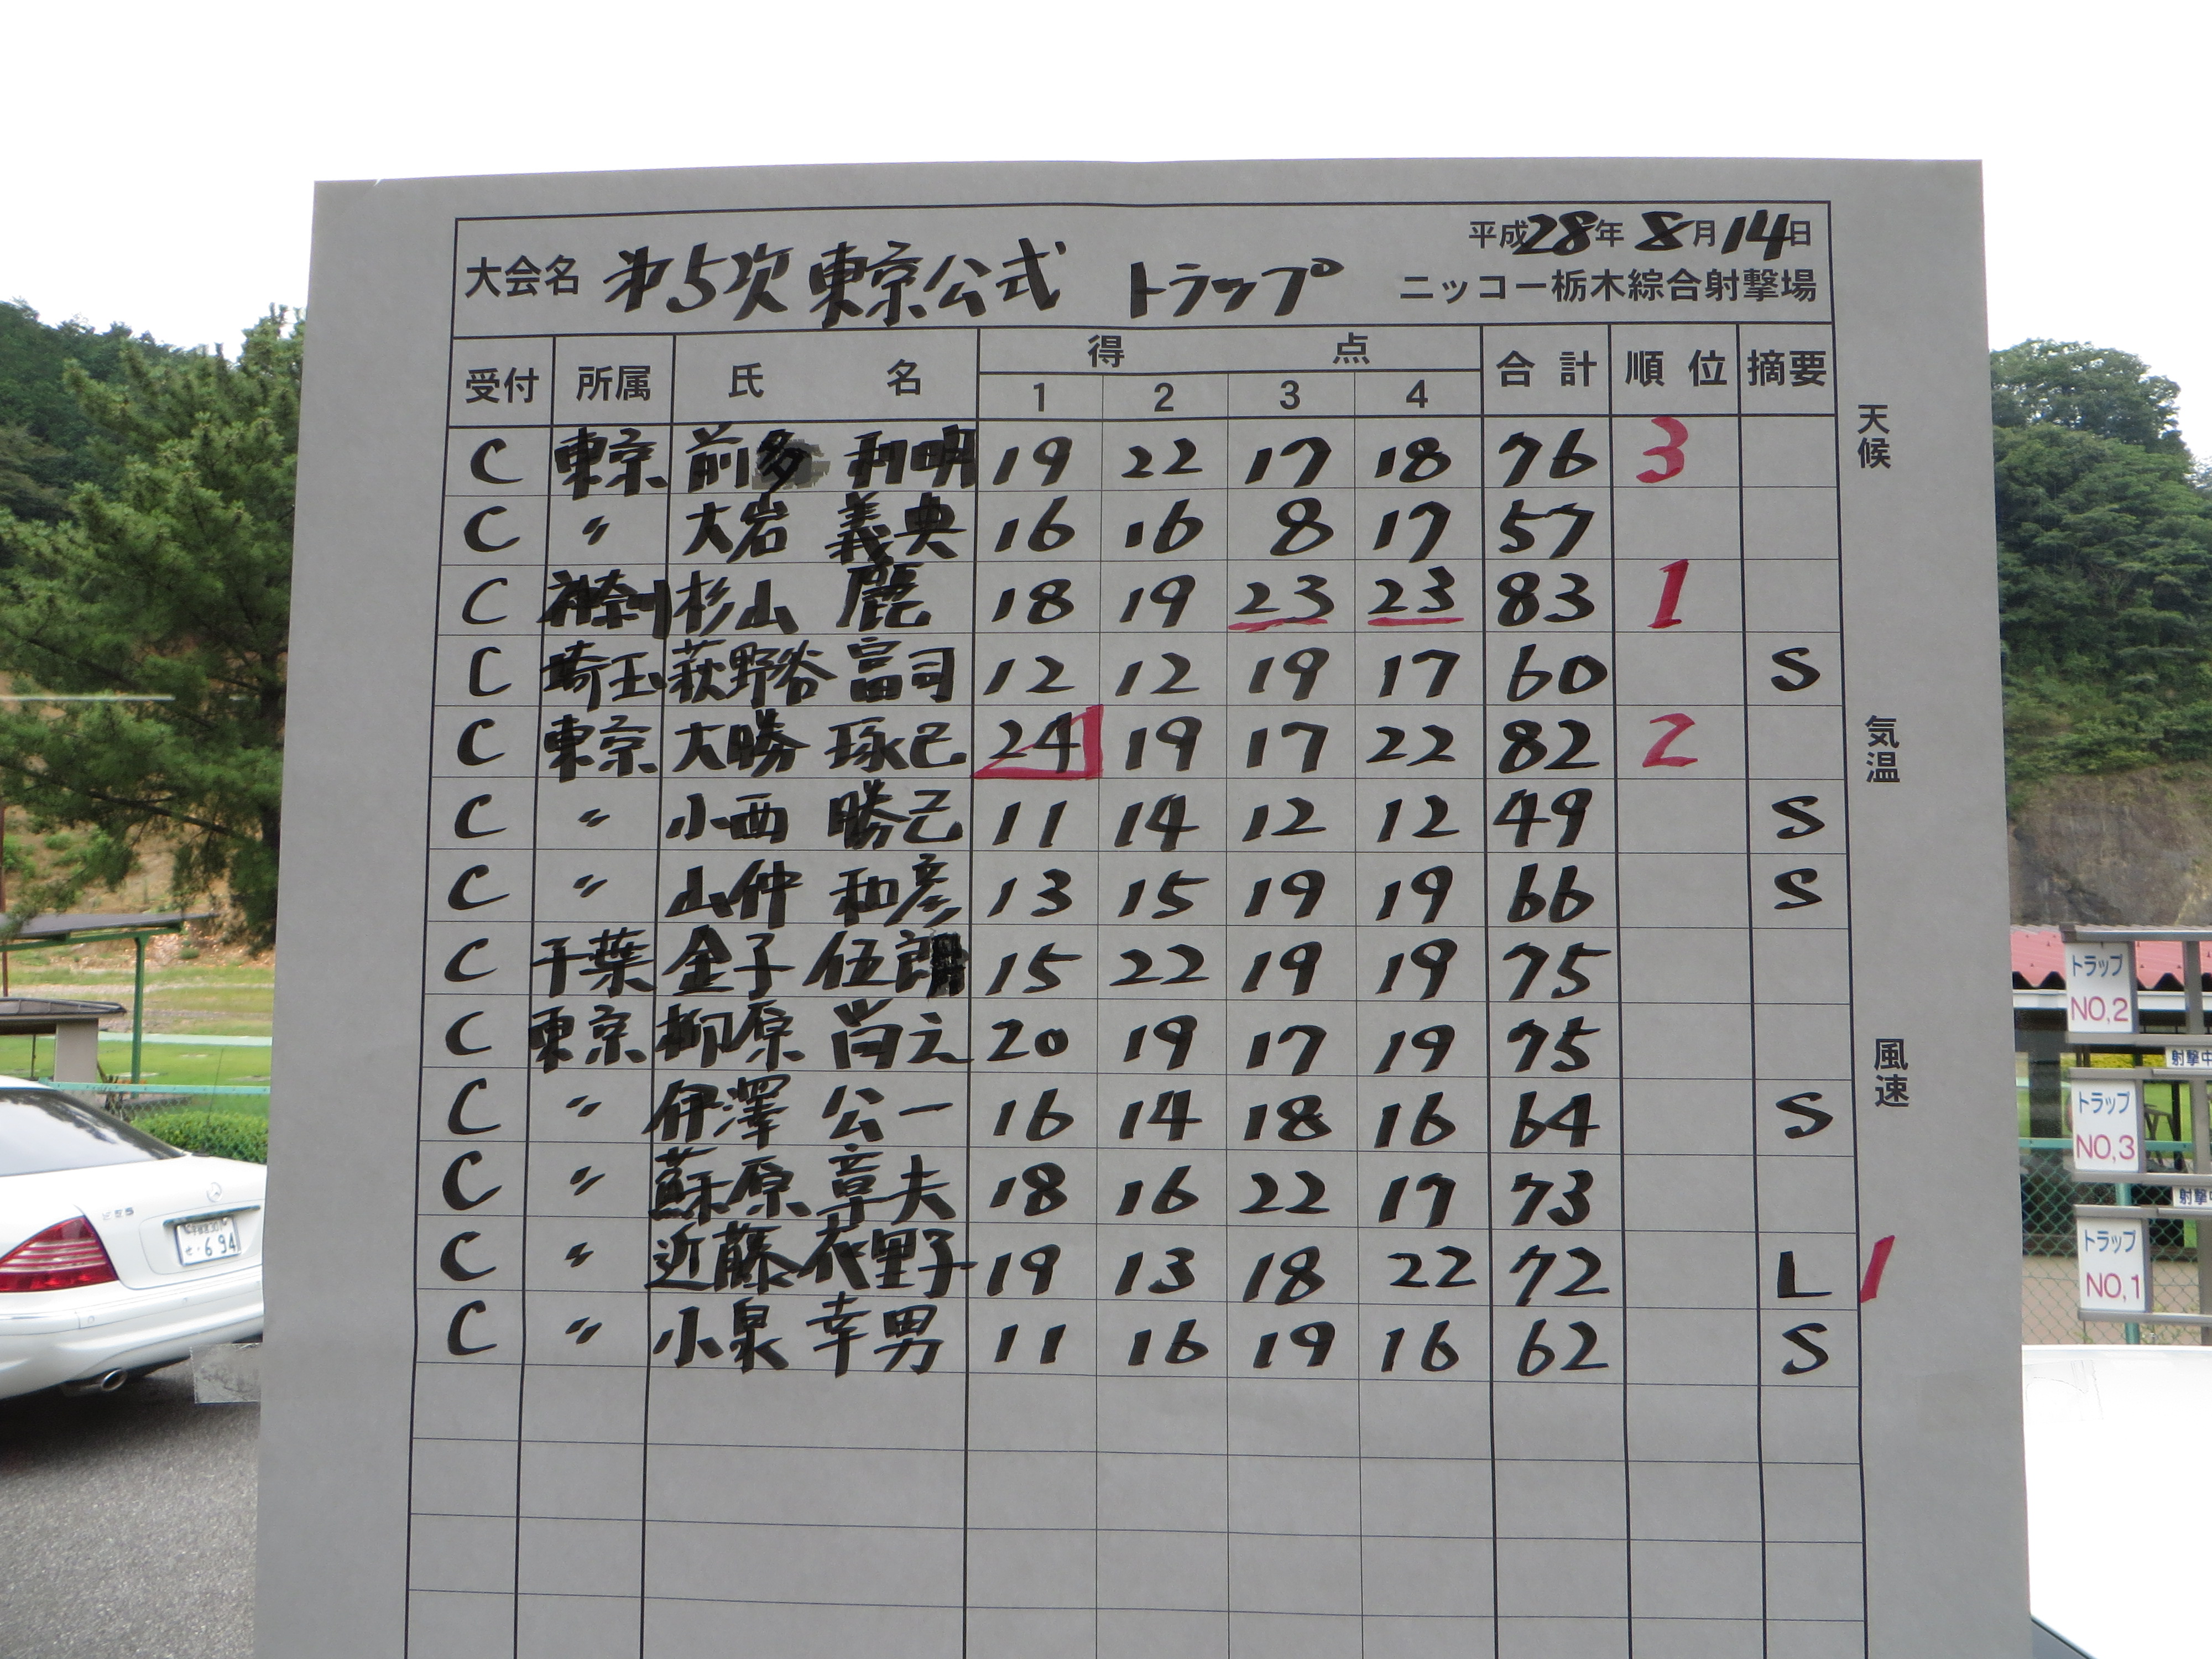 平成28年8月14日
大会名 第5次 東京公式 トラップ ニッコー栃木綜合射撃場
受付 所属 氏名 得点 合計 順位 摘要
1 2 3 4
天候
C 東京 前多 利明 19 22 17 18 76 3
C 〃 大岩 義央 16 16 8 17 57
C 神奈川 杉山 麗 18 19 23 23 83 1
C 埼玉 荻野谷 富司 12 12 19 17 60 S
気温
C 東京 大勝 琢己 24 19 17 22 82 2
C 〃 小西 勝己 11 14 12 12 49 S
C 〃 山仲 和彦 13 15 19 19 66 S
C 千葉 金子 伍朗 15 22 19 19 75
C 東京 柳原 尚之 20 19 17 19 75
風速
C 〃 伊澤 公一 16 14 18 16 64 S
C 〃 蘇原 章夫 18 16 22 17 73
C 〃 近藤 衣里子 19 13 18 22 72 L 1
C 〃 小泉 幸男 11 16 19 16 62 S
トラップ
NO,2
射撃中
トラップ
NO,3
射撃中
トラップ
NO,1
せ・6 94